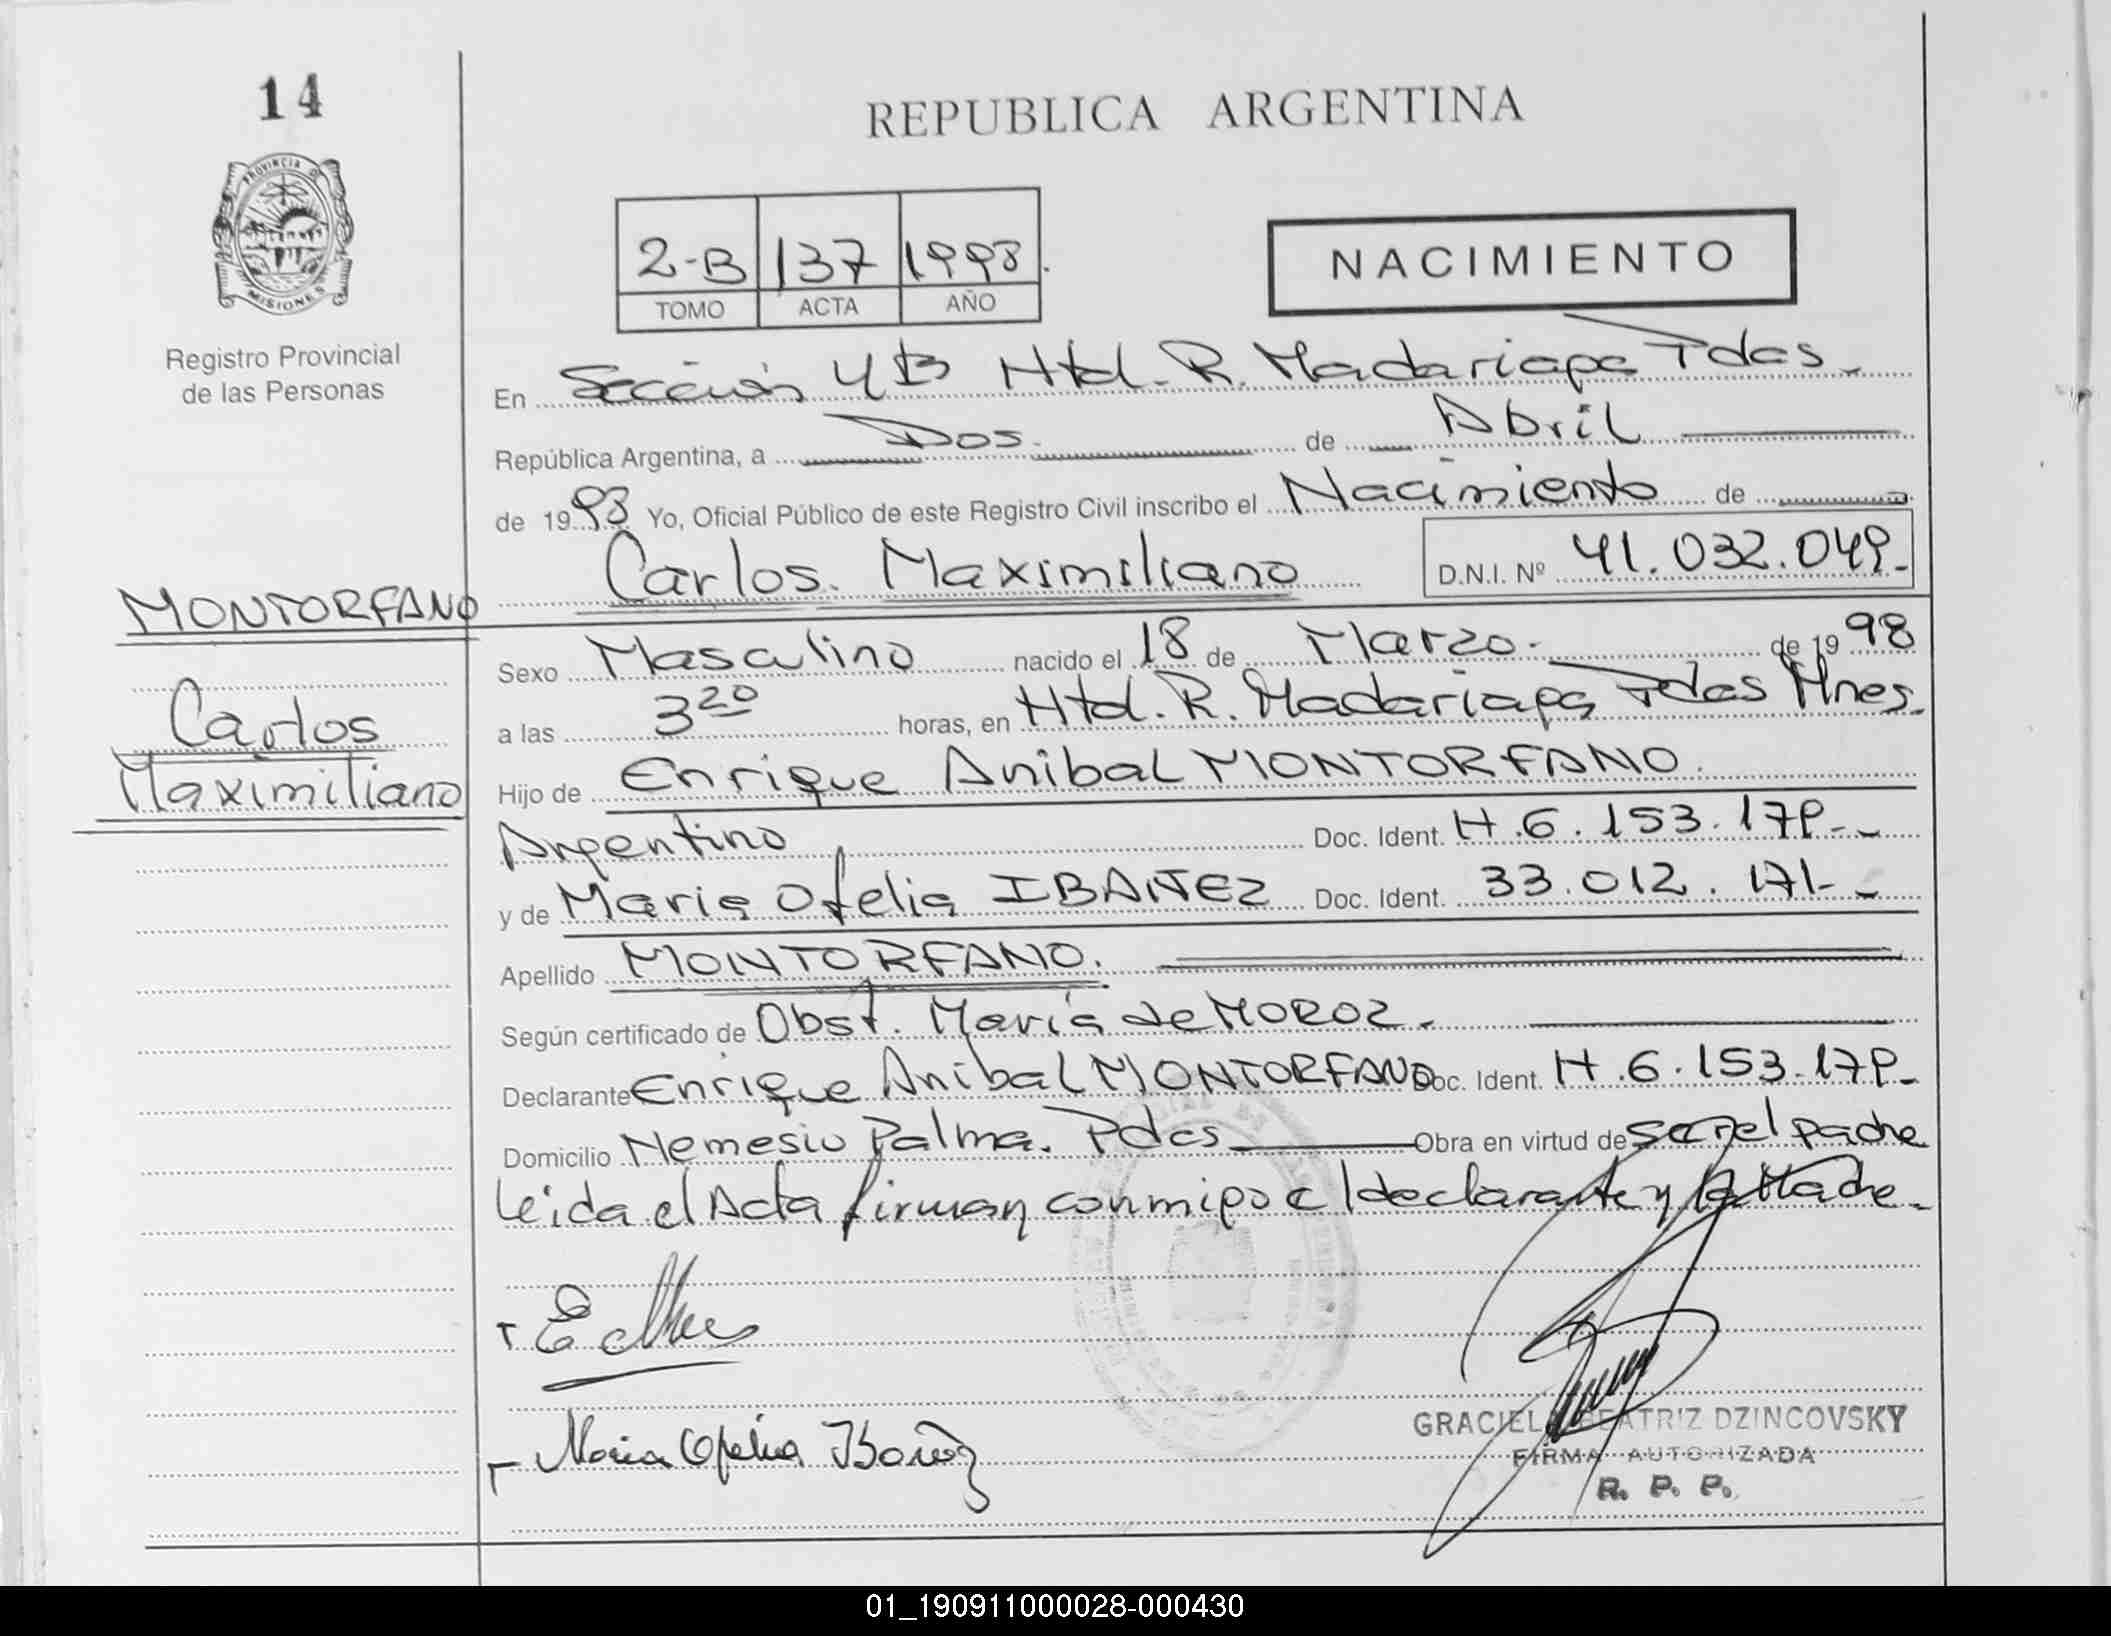 14
REPUBLICA ARGENTINA
PROVINCIA D
MISIONES
2-B 137 1998.
TOMO ACTA AÑO
NACIMIENTO
Registro Provincial
de las Personas
En Sección 4tB Htd. R. Madariaga Pdas.
República Argentina, a Dos. de Abril
de 1998 Yo, Oficial Público de este Registro Civil inscribo el Nacimiento de
Carlos. Maximiliano D.N.I. Nº 41.032.049.-
MONTORFANO
Carlos
Maximiliano
Sexo Masculino nacido el 18 de Marzo. de 1998
a las 3 20 horas, en Htd. R. Madariaga Pdas Mnes.
Hijo de Enrique Anibal MONTORFANO.
Argentino Doc. Ident. H.6.153.179.-
y de Maria Ofelia IBAÑEZ Doc. Ident. 33.012.171.-
Apellido MONTORFANO.
Según certificado de Obst. María de MOROZ.
Declarante Enrique Anibal MONTORFANO Doc. Ident. H.6.153.179.-
Domicilio Nemesio Palma. Pdas Obra en virtud de ser el padre
leida el Acta firman conmigo el declarante y la Madre.
Maria Ofelia Ibañez
GRACIELA BEATRIZ DZINCOVSKY
FIRMA AUTORIZADA
R. P. P.
01_190911000028-000430